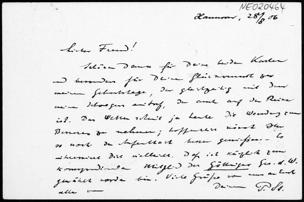 NE020464
Hannover, 28/8 06
Lieber Freund!
Schönen Dank für Deine beiden Karten
und besonders für Deine Glückwünsche zu
meinem Geburtstage, der gleichzeitig mit dem
meines Schwagers eintraf, der auch auf der Reise
ist. Das Wetter scheint ja heute die Wendung zum
Besseren zu nehmen; hoffentlich könnt Ihr
so noch den Aufenthalt besser genießen.
interessiert Dich vielleicht. Daß ich kürzlich zum
korrespondierenden Mitglied der Göttinger Ges. d. W.
gewählt worden bin. Viele Grüße von uns an Euch
alle von Deinem P. St.